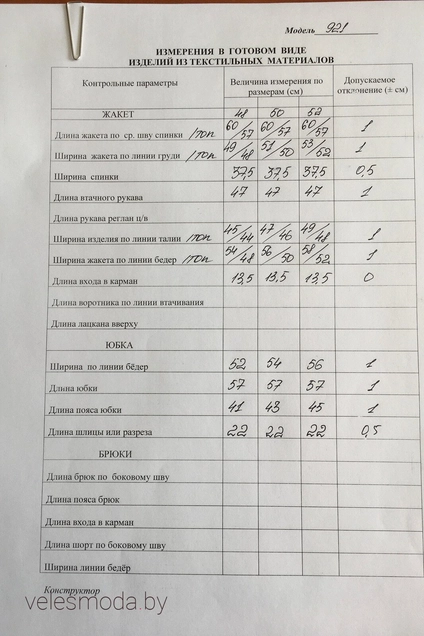 Модель 921
ИЗМЕРЕНИЯ В ГОТОВОМ ВИДЕ
ИЗДЕЛИЙ ИЗ ТЕКСТИЛЬНЫХ МАТЕРИАЛОВ
Контрольные параметры Величина измерения по размерам (см) Допускаемое отклонение (± см)
ЖАКЕТ 48 50 52
Длина жакета по ср. шву спинки /топ 60/57 60/57 60/57 1
Ширина жакета по линии груди /топ 49/48 51/50 53/52 1
Ширина спинки 37,5 37,5 37,5 0,5
Длина втачного рукава 47 47 47 1
Длина рукава реглан ц/в
Ширина изделия по линии талии /топ 45/44 47/46 49/48 1
Ширина жакета по линии бедер /топ 54/48 56/50 58/52 1
Длина входа в карман 13,5 13,5 13,5 0
Длина воротника по линии втачивания
Длина лацкана вверху
ЮБКА
Ширина по линии бёдер 52 54 56 1
Длина юбки 57 57 57 1
Длина пояса юбки 41 43 45 1
Длина шлицы или разреза 22 22 22 0,5
БРЮКИ
Длина брюк по боковому шву
Длина пояса брюк
Длина входа в карман
Длина шорт по боковому шву
Ширина линии бедёр
Конструктор
velesmoda.by